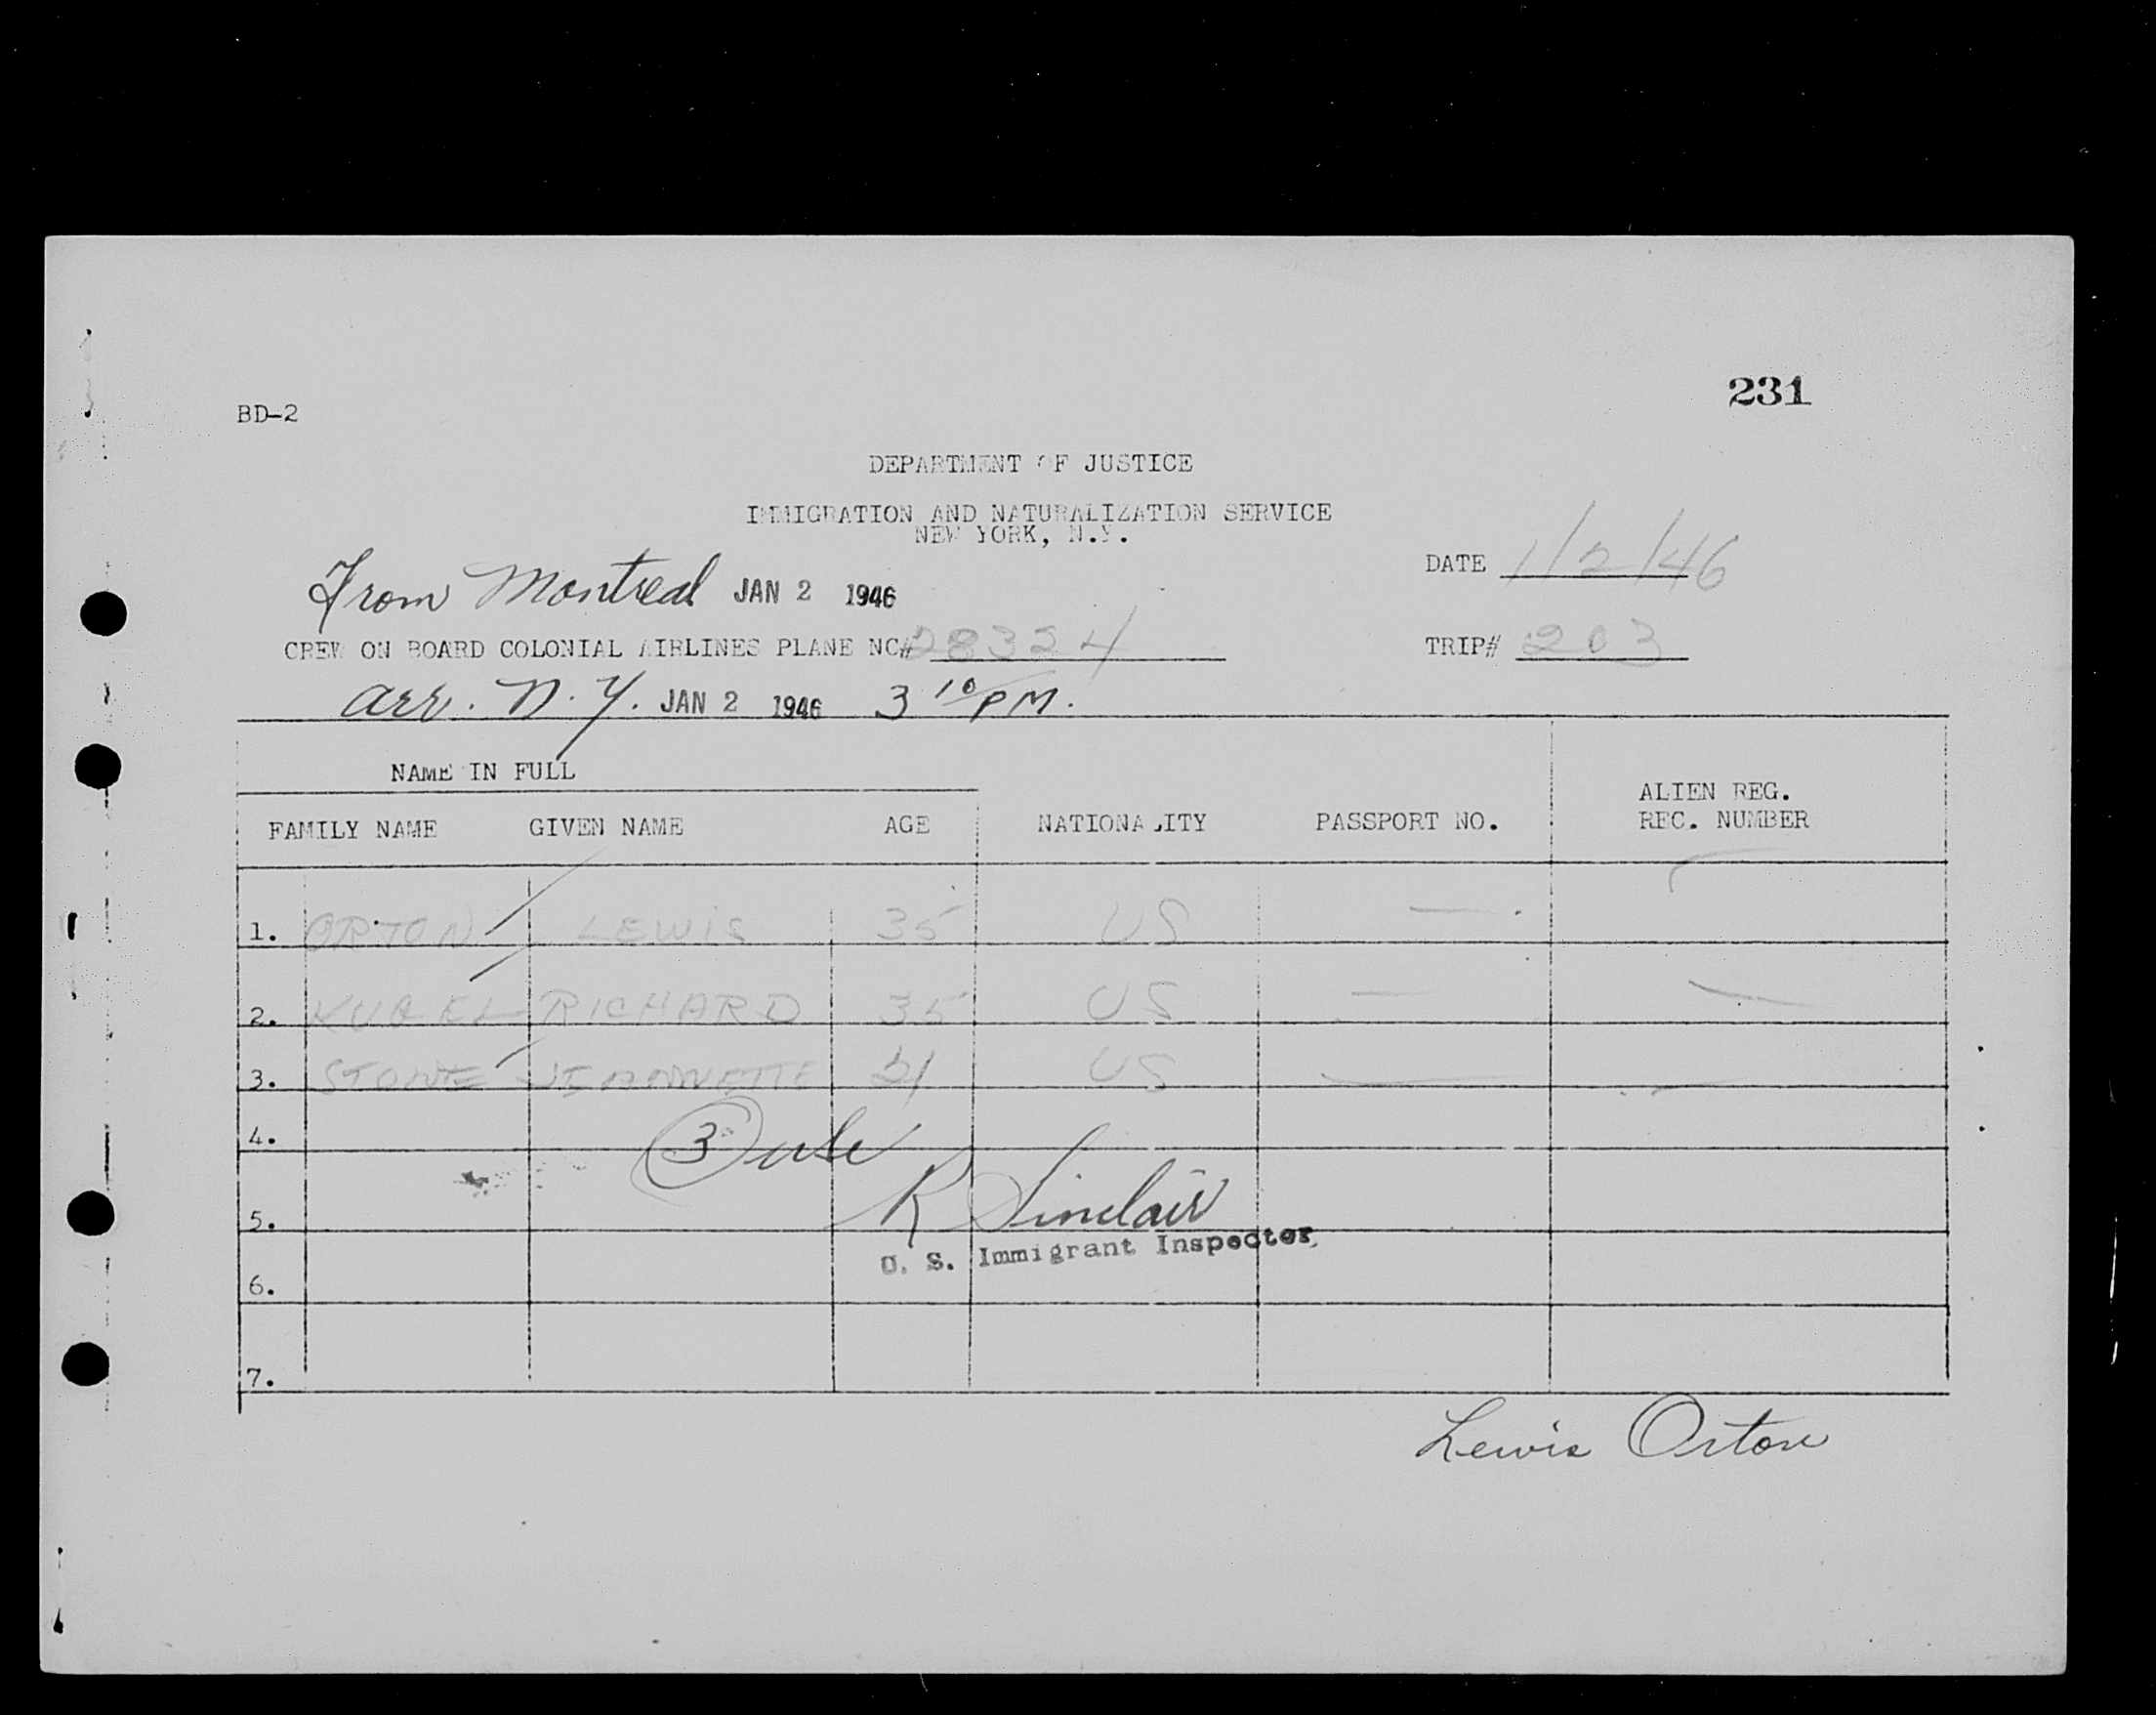 231
BD-2
DEPARTMENT OF JUSTICE
IMMIGRATION AND NATURALIZATION SERVICE
NEW YORK, N.Y.
DATE 1/2/46
From Montreal JAN 2 1946
CREW ON BOARD COLONIAL AIRLINES PLANE NC# 28324 TRIP# 203
arr. N.Y. JAN 2 1946 3 10 PM.
NAME IN FULL
FAMILY NAME GIVEN NAME AGE NATIONALITY PASSPORT NO. ALIEN REG. REC. NUMBER
1. ORTON LEWIS 35 US —
2. KUGEL RICHARD 35 US — —
3. STONE JEANNETTE 21 US — —
4. 3
R Sinclair
5.
U. S. Immigrant Inspector
6.
7.
Lewis Orton